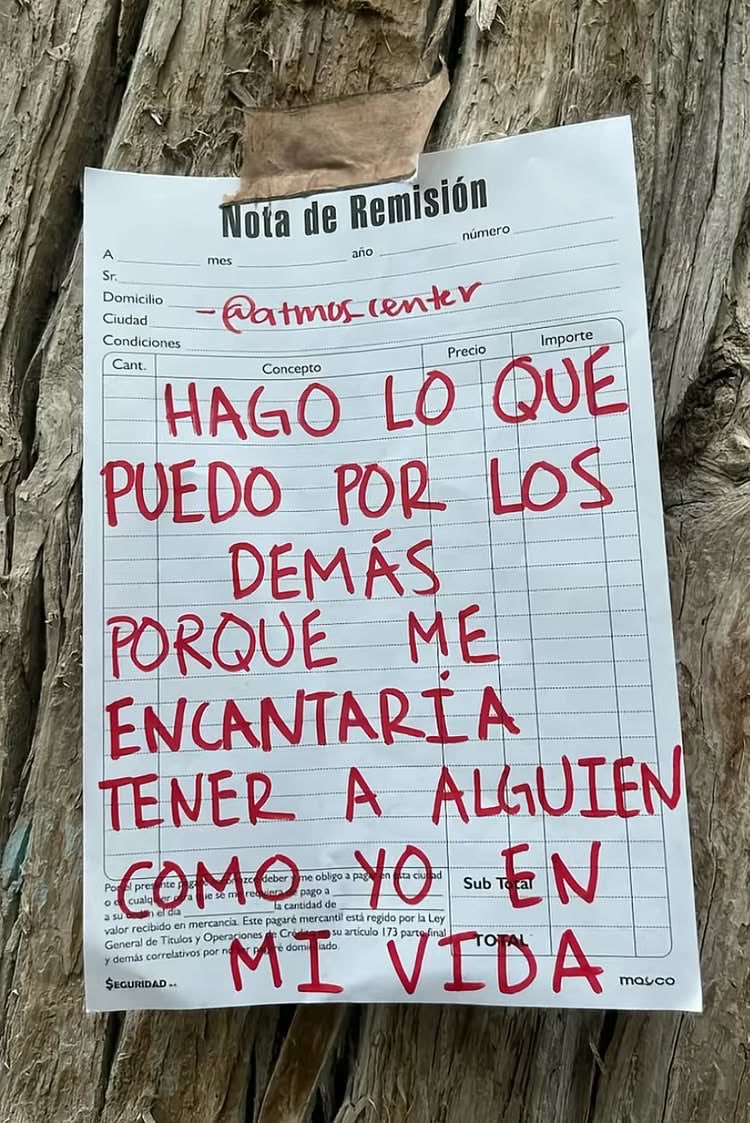 Nota de Remisión
A mes año número
Sr.
Domicilio
Ciudad
-@atmos_center
Condiciones
Cant. Concepto Precio Importe
HAGO LO QUE
PUEDO POR LOS
DEMÁS
PORQUE ME
ENCANTARÍA
TENER A ALGUIEN
COMO YO EN
MI VIDA
Por el presente deber y me obligo a pagar en esta ciudad
o en cualquier para que se me requiera de pago a
a su orden el día la cantidad de
valor recibido en mercancía. Este pagaré mercantil está regido por la Ley
General de Títulos y Operaciones de Crédito en su artículo 173 parte final
y demás correlativos por no pagaré domiciliado.
Sub Total
TOTAL
SEGURIDAD
masco